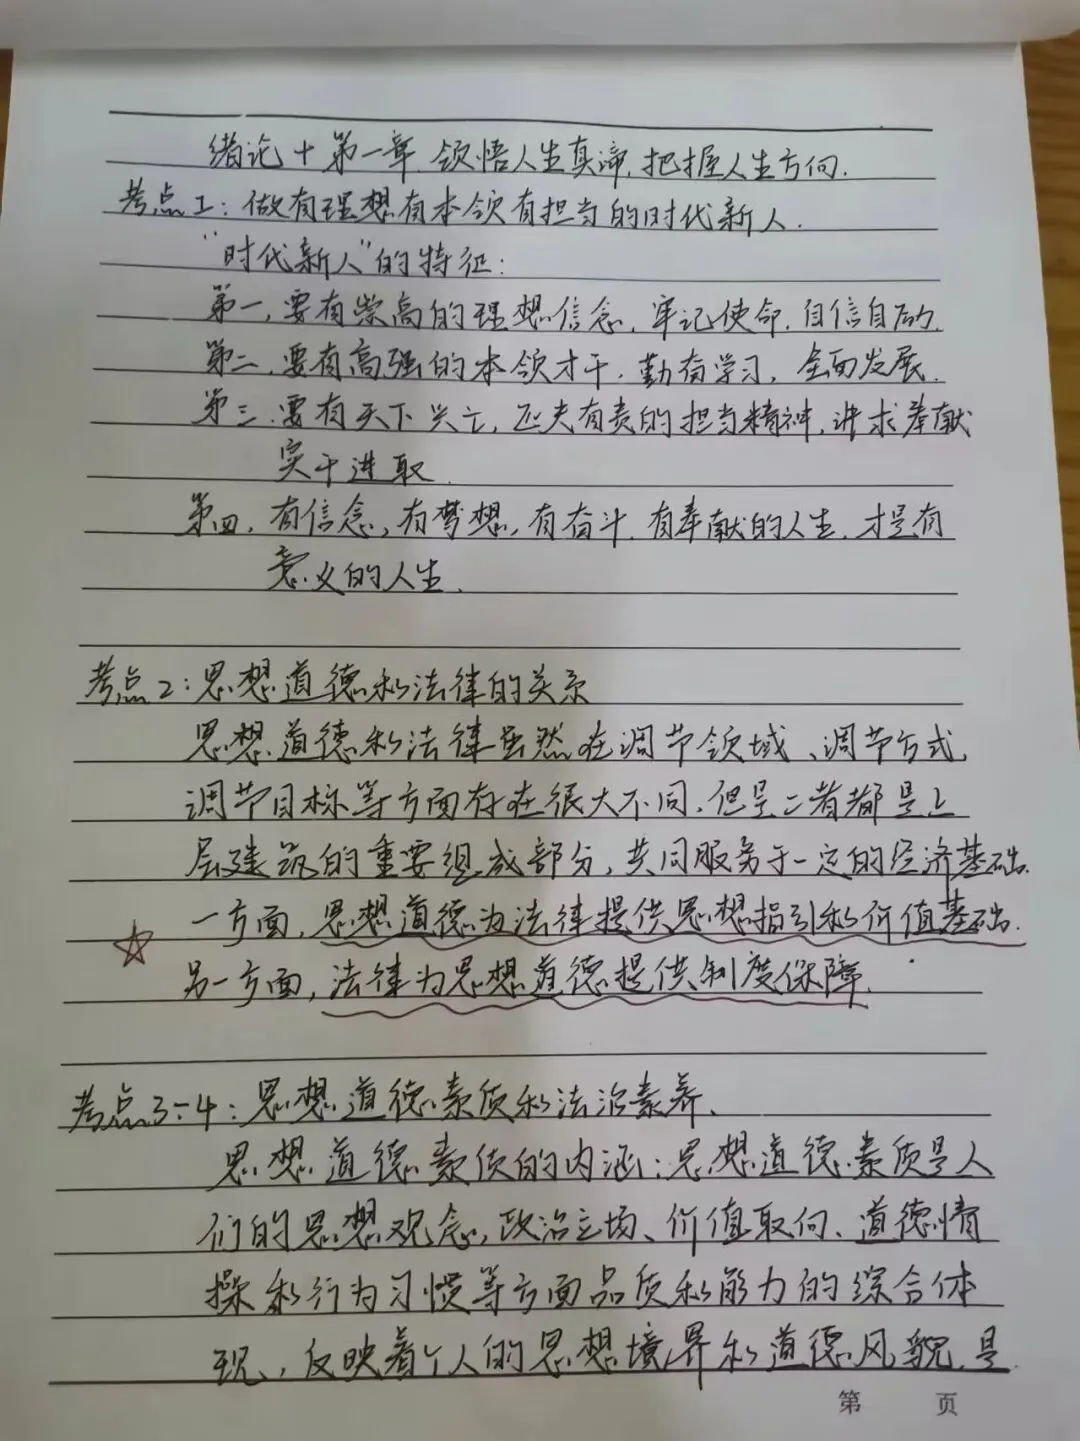 绪论+第一章 领悟人生真谛,把握人生方向.
考点1:做有理想有本领有担当的时代新人.
“时代新人”的特征:
第一,要有崇高的理想信念,牢记使命,自信自励.
第二,要有高强的本领才干,勤奋学习,全面发展.
第三,要有天下兴亡,匹夫有责的担当精神,讲求奉献
实干进取.
第四,有信念,有梦想,有奋斗,有奉献的人生,才是有
意义的人生.
考点2:思想道德和法律的关系
思想道德和法律虽然在调节领域、调节方式,
调节目标等方面存在很大不同,但是二者都是上
层建筑的重要组成部分,共同服务于一定的经济基础.
一方面,思想道德为法律提供思想指引和价值基础.
另一方面,法律为思想道德提供制度保障.
考点3-4:思想道德素质和法治素养、
思想道德素质的内涵:思想道德素质是人
们的思想观念,政治立场、价值取向、道德情
操和行为习惯等方面品质和能力的综合体
现,反映着个人的思想境界和道德风貌,是
第 页